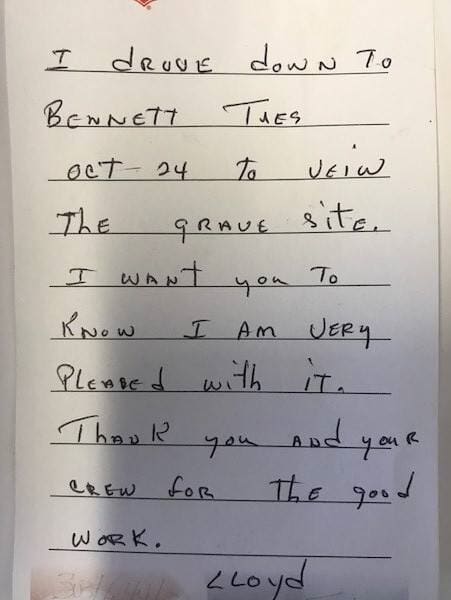 I drove down To
BENNETT Tues
OCT - 24 To VEIW
The grave site.
I want you To
Know I Am Very
Pleased with iT.
Thank you and your
crew for The good
work.
LLoyd